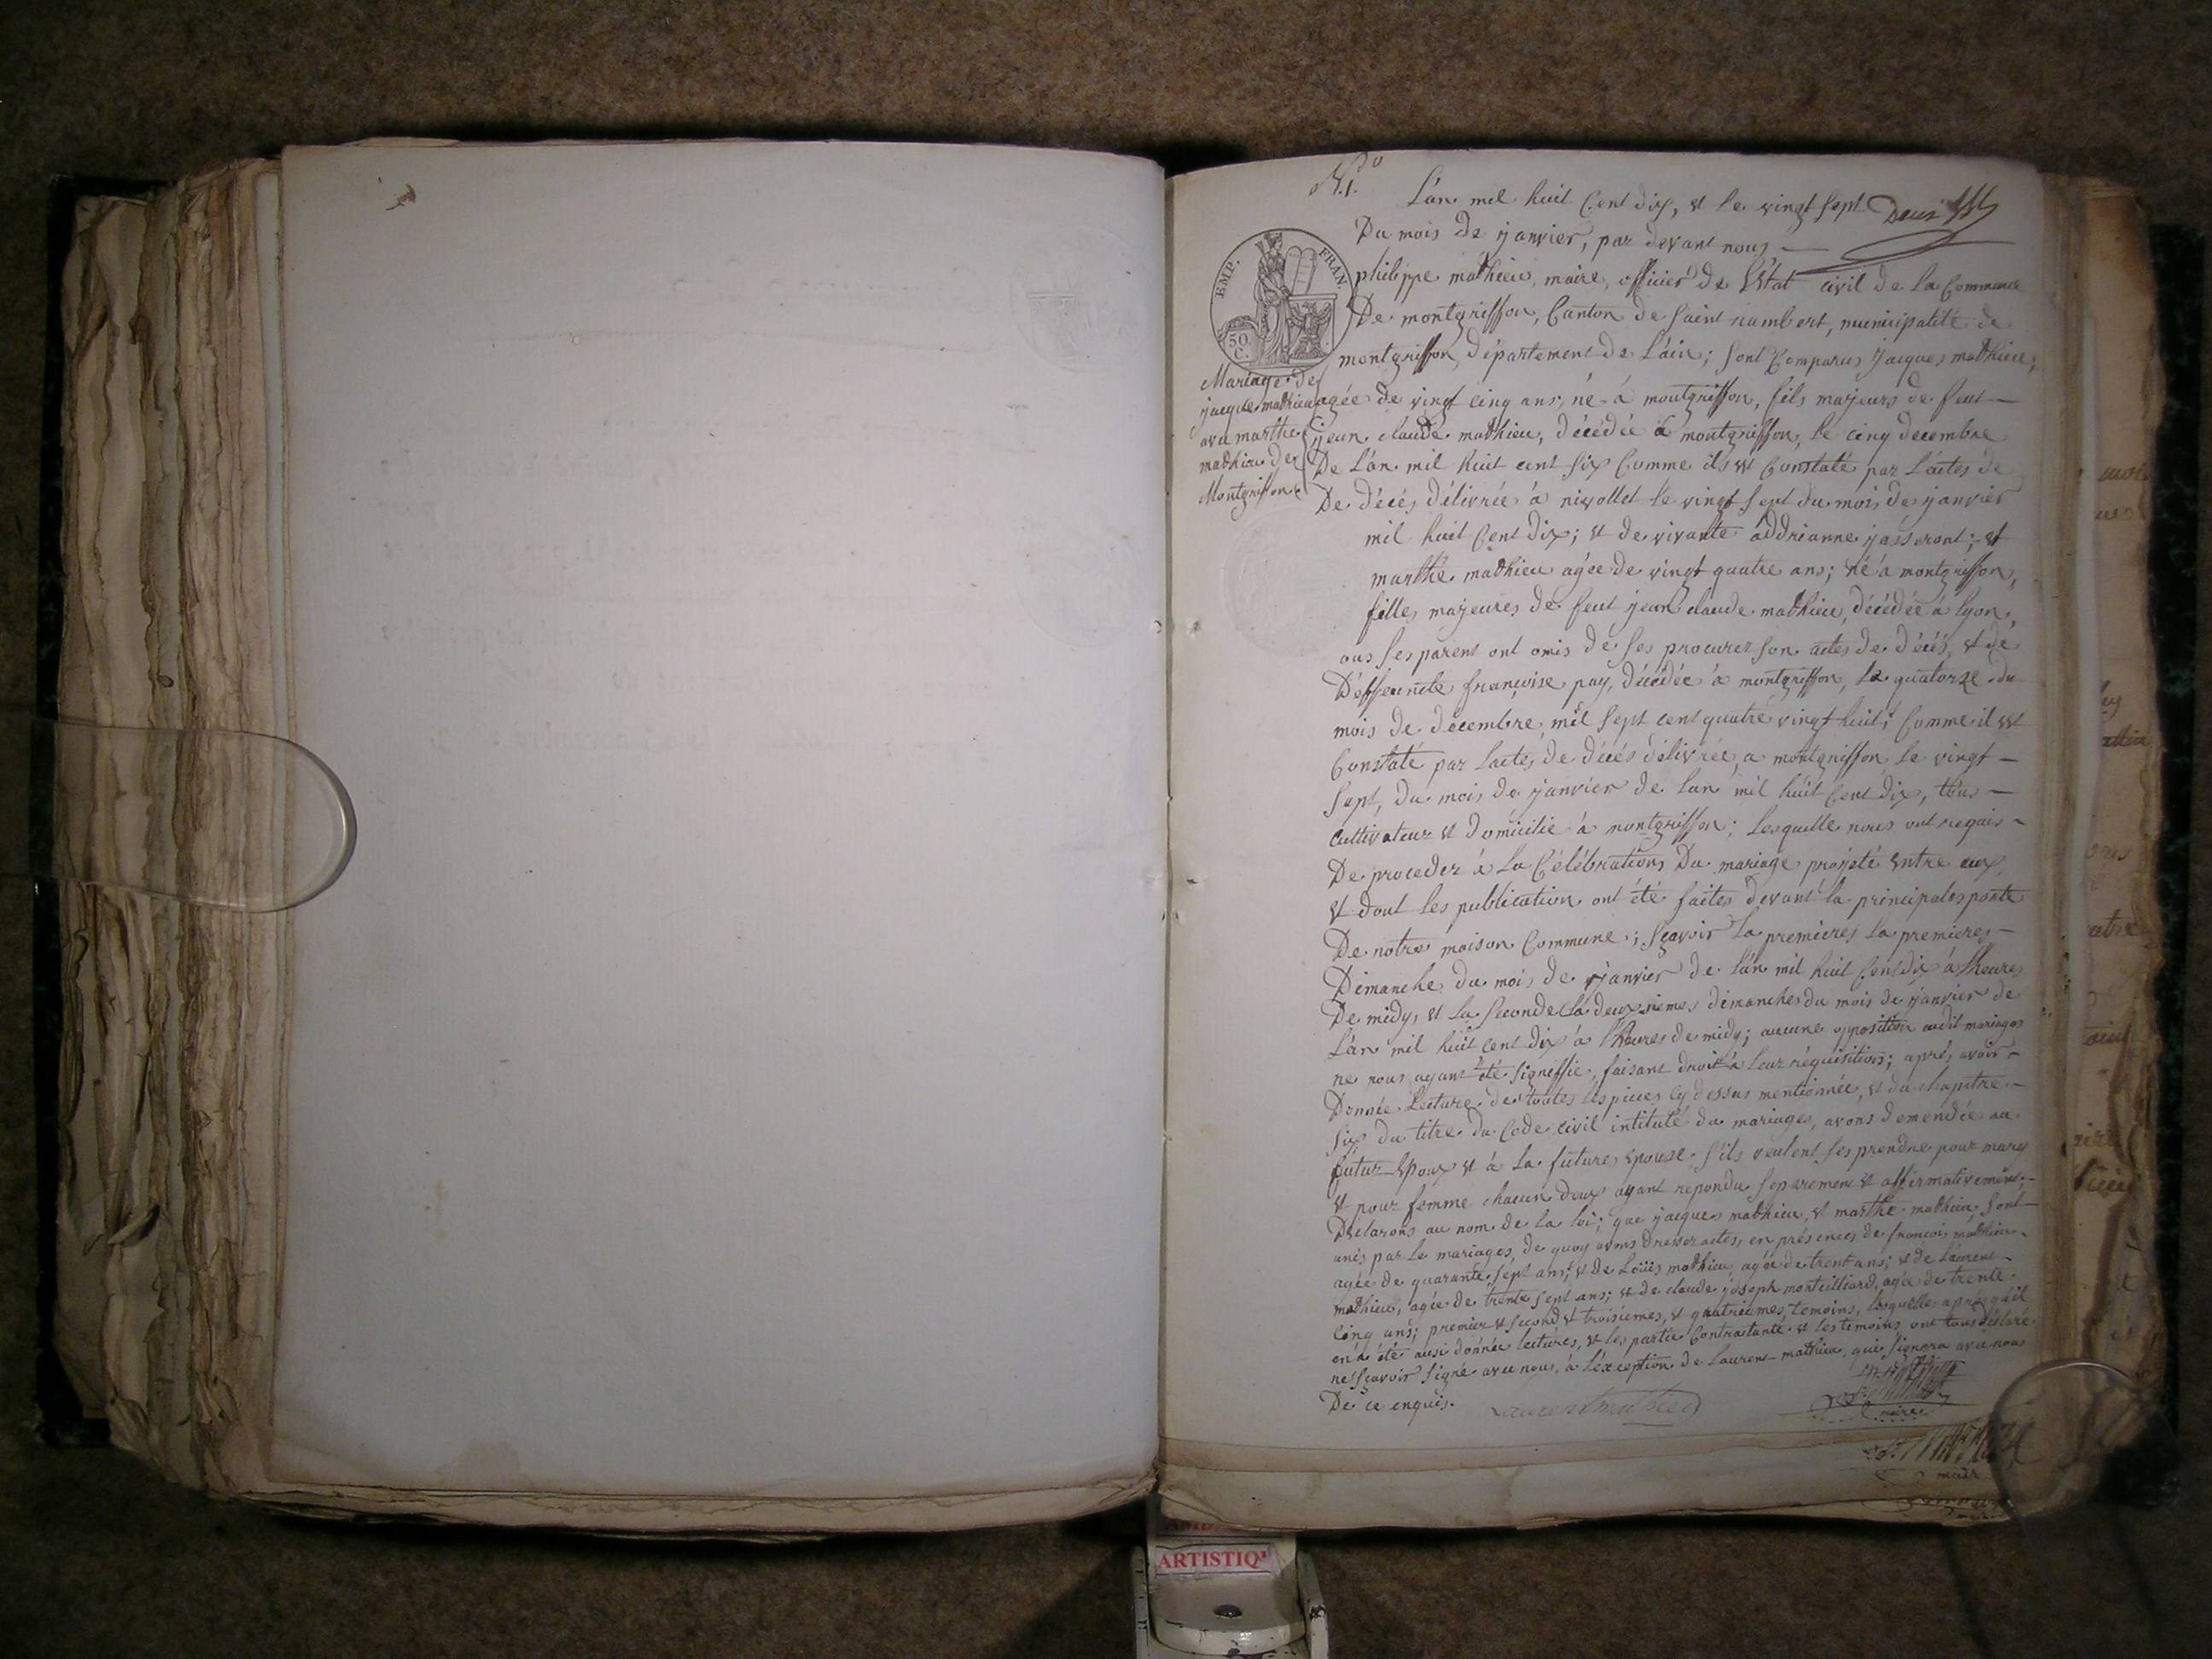 N.1. du
L'an mil huit Cent dix, et le vingt sept
Du mois De janvier, par devant nous —
philippe mathieu, maire, officier de l'état civil de la Commune
De montgriffon, Canton de saint rambert, municipalité de
montgriffon, département de l'ain; sont Comparus jacques mathieu,
agée de vingt cinq ans, né à montgriffon, fils majeurs de feut —
jean claude mathieu, décédée à montgriffon, le cinq decembre
De l'an mil huit cent six Comme ils est Constaté par l'actes de
De décés délivrée à nivollet le vingt sept du mois de janvier
mil huit Cent dix; et de vivante addrianne jasseront; et
marthe mathieu agée de vingt quatre ans; né à montgriffon,
filles majeures de feut jean claude mathieu, décédée à lyon,
ous ses parent ont omis de ses procurer son actes de décés, et de
Déffeuncte françoise pay, décédée à montgriffon, le quatorze du
mois de décembre, mil sept cent quatre vingt huit; Comme il est
Constaté par lactes de décés délivrée a montgriffon le vingt —
sept, du mois de janvier de lan mil huit Cent dix, tous —
cultivateur et domicilié à montgriffon; lesquelle nous ont requis —
De proceder à la Célébrations Du mariage projeté entre eux
et dont les publication ont été faites devant la principales porte
De notre maison Commune; sçavoir la premieres la premieres —
Dimanche du mois de janvier de l'an mil huit Cent dix à lheures
De midy, et la seconde la deuxsiemes dimanches du mois de janvier de
L'an mil huit cent dix à lheures de midy; aucune opposition audit mariages
ne nous ayant été signiffié, faisant droit à leur réquisitions; après avoir —
Donnée lecture de toutes les pieces cy dessus mentionnée, et du chapitre —
six du titre du Code civil intitulé du mariages, avons demendée au
futur Epoux et à la futures epouse s'ils veulent ses prendre pour mary
et pour femme chacun deux ayant repondu séparement et affirmativement; —
Déclarons au nom de la loi; que jacques mathieu, et marthe mathieu sont —
unis par le mariages, de quoy avons dresser actes, en présences de francois mathieu
agée de quarante sept ans; et de Loüis mathieu agée de trent ans; et de laurent —
mathieu, agée de trente sept ans; et de claude joseph monteilliard, agée de trente
cinq ans; premier et second et troisiemes, et quatriemes temoins, lesquelles après qu'il
en à été aussi donnée lectures, et les partie Contractante et les temoins ont tous déclaré
ne sçavoir signé avec nous, à l'exception de laurent mathieu, qui signera avec nous
De ce enquis.
Laurent mathieu
maire
maire
EMP. FRAN.
50 C.
Mariage de
jacque mathieu
avec marthe
mathieu de
Montgriffon
ARTISTIQ